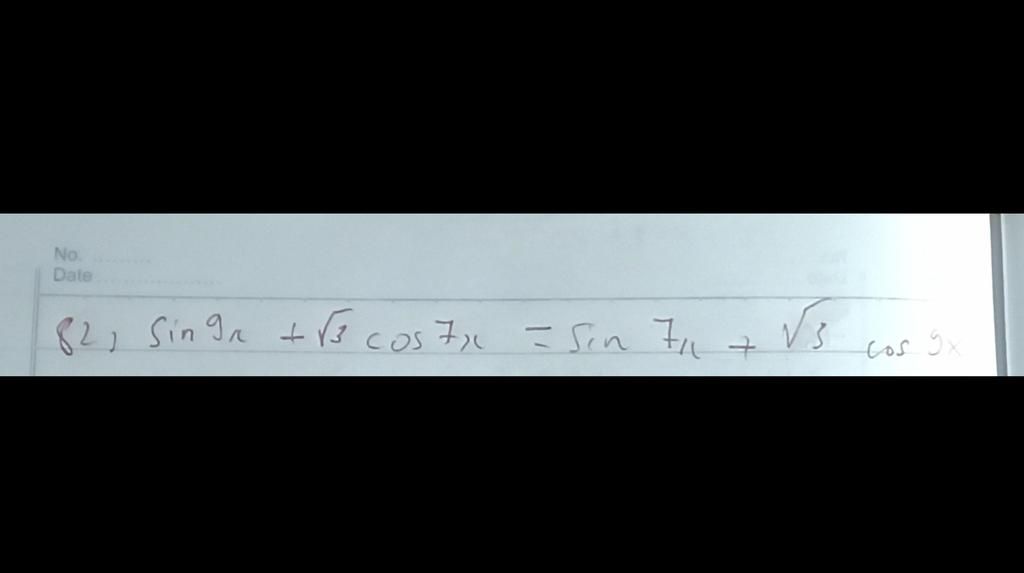 No. ..........
Date ....................
82, sin 9x + √3 cos 7x = sin 7x + √3 cos 9x